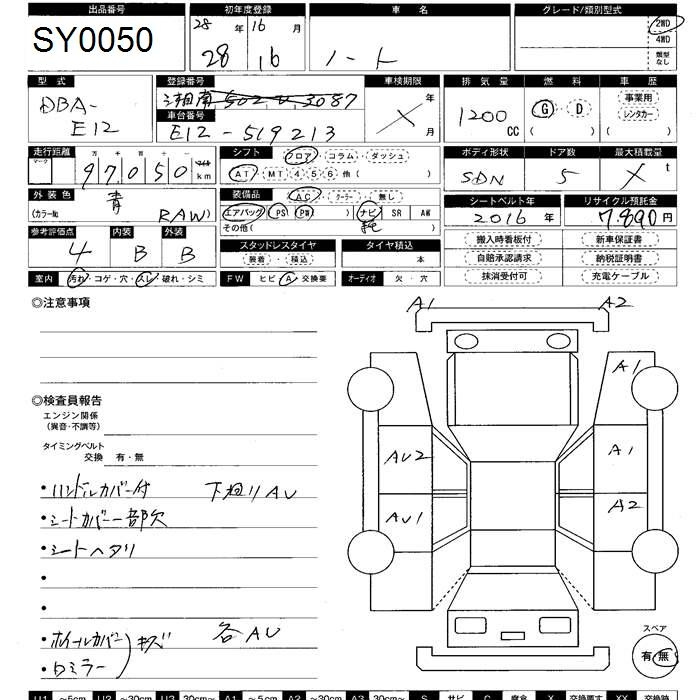 出品番号 初年度登録 車 名 グレード/類別型式
SY0050
28 年 16 月
28 16 ノート
2WD
4WD
類型なし
型 式 登録番号 車検期限 排 気 量 燃 料 車 歴
DBA-
E12
湘南 502 3087
車台番号
E12-519213
X 年 月
1200 CC
G・D
( )
事業用
レンタカー
( )
走行距離 シフト ボディ形状 ドア数 最大積載量
マーク 十 万 千 百 十 一 マイル
97050 km
フロア・コラム・ダッシュ
AT・MT 4 5 6 他( )
SDN 5 X t
外 装 色 装備品 シートベルト年 リサイクル預託金
青
(カラーNo RAW)
AC・クーラー・無し
エアバッグ PS PW( ) ナビ SR AW
その他( 純 )
2016 年 7.890 円
参考評価点 内装 外装
4 B B
スタッドレスタイヤ タイヤ積込
装着・積込 本
搬入時看板付 新車保証書
自賠承認請求 納税証明書
抹消受付可 充電ケーブル
室内 汚れ・コゲ・穴・スレ・破れ・シミ FW ヒビ・A・交換要 オーディオ 欠・穴
◎注意事項
A1 A2
◎検査員報告
エンジン関係
(異音・不調等)
タイミングベルト
交換 有・無
A1
AU2 A1
AU1 A2
・ハンドルカバー付 下廻りAU
・シートカバー一部欠
・シートヘタリ
・
・
・ホイールカバー
・ロミラー
キズ 各AU
スペア
有・無
U1 ～5cm U2 ～30cm U3 30cm～ A1 ～5cm A2 ～30cm A3 30cm～ S サビ C 腐食 X 交換要す XX 交換跡